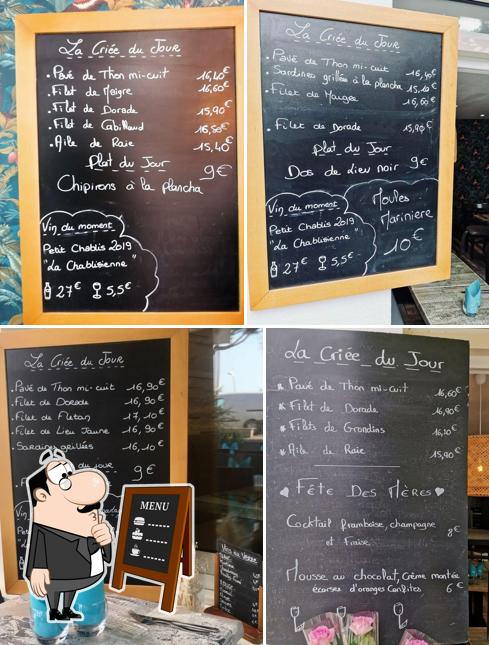 La Criée du Jour
• Pavé de Thon mi-cuit 16,40€
• Filet de Maigre 16,60€
• Filet de Dorade 15,90€
• Filet de Cabillaud 16,50€
• Aile de Raie 15,40€
Plat du Jour
9€
Chipirons à la plancha
Vin du moment
Petit Chablis 2019
"La Chablisienne"
27€ 5,5€
La Criée du Jour
• Pavé de Thon mi-cuit 16,40€
• Sardines grillées à la plancha 15,10€
• Filet de Maigre 16,60€
• Filet de Dorade 15,90€
Plat du Jour
Dos de lieu noir 9€
Vin du moment
Petit Chablis 2019
"La Chablisienne"
27€ 5,5€
Moules
Marinière
10€
La Criée du Jour
• Pavé de Thon mi-cuit 16,90€
• Filet de Dorade 16,90€
• Filet de Flétan 17,10€
• Filet de Lieu Jaune 16,90€
• Sardines grillées 16,10€
du jour
9€
MENU
Vins au Verre
La Criée du Jour
* Pavé de Thon mi-cuit 16,60€
* Filet de Dorade 16,90€
* Filets de Grondins 16,10€
* Aile de Raie 15,90€
♥ Fête Des Mères ♥
Cocktail framboise, champagne
et Fraise 8€
Mousse au chocolat, Crème montée
écorses d'oranges Confites 6€